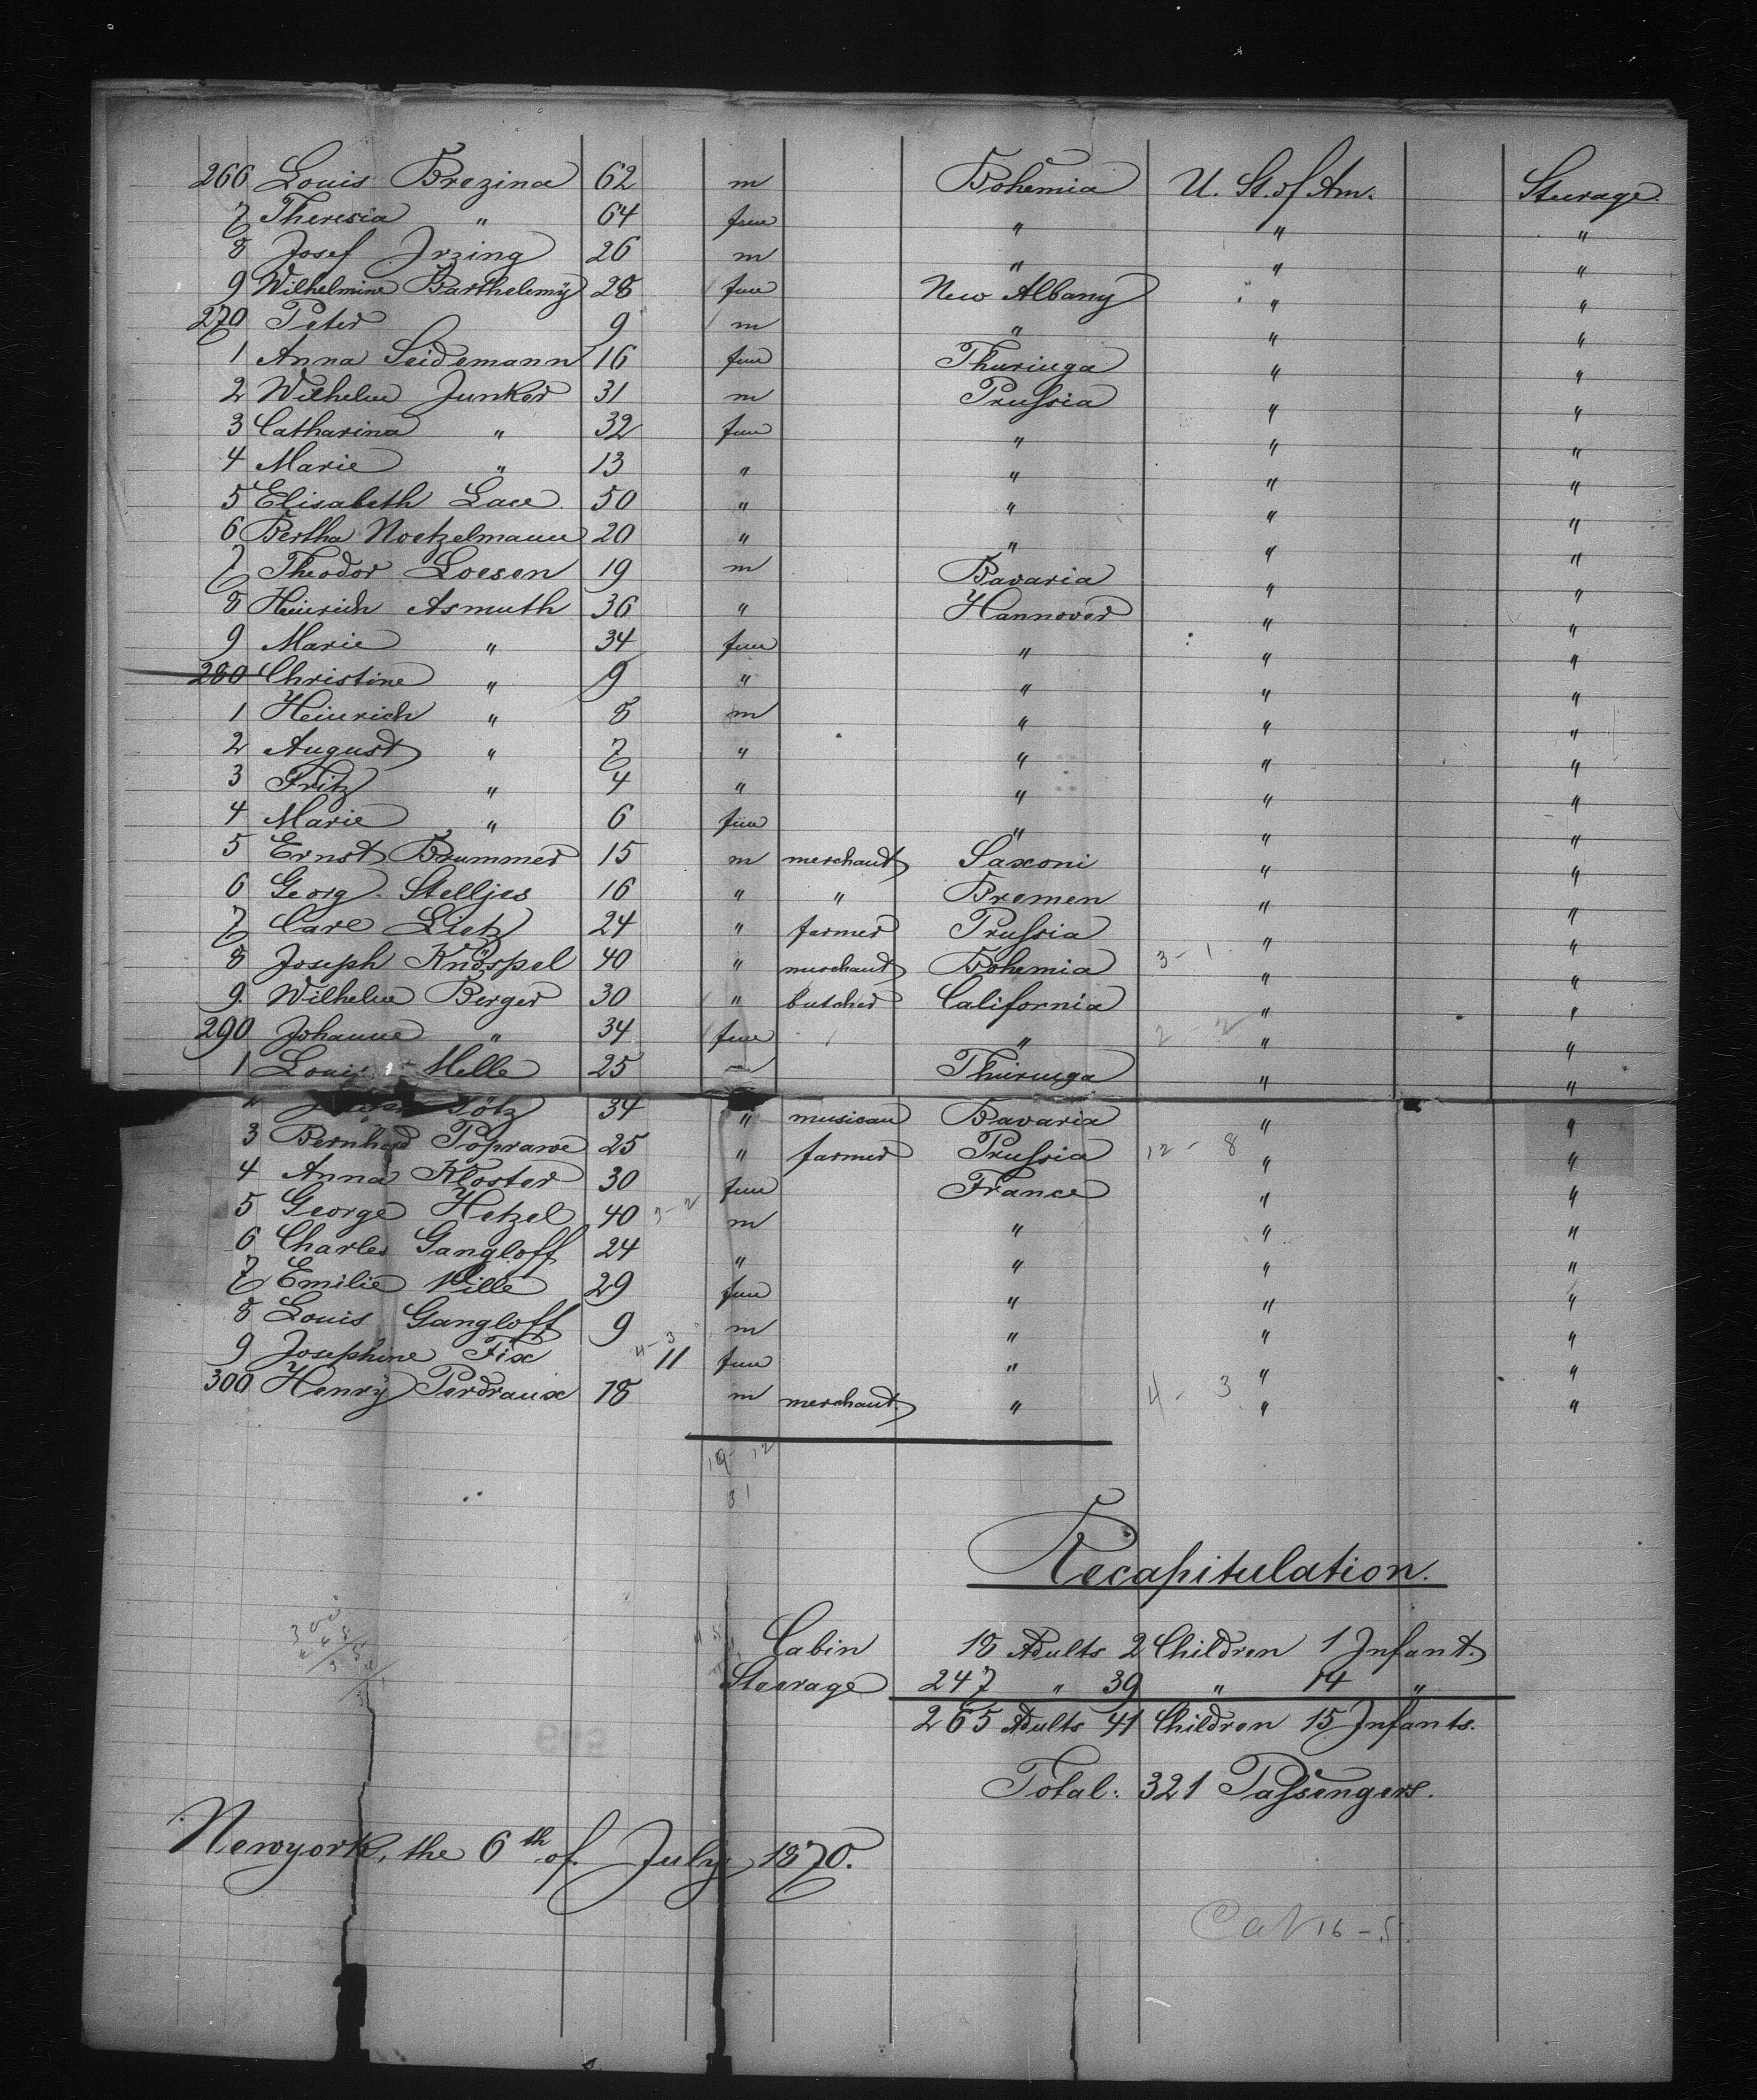 266 Louis Brezina 62 m Bohemia U. St. of Am. Sturage.
7 Theresia " 64 fem " " "
8 Josef Jrzing 26 m " " "
9 Wilhelmine Barthelemÿ 28 fem New Albany " "
270 Peter 9 m " " "
1 Anna Seidemann 16 fem Thuringa " "
2 Wilhelm Junker 31 m Prussia " "
3 Catharina " 32 fem " " "
4 Marie " 13 " " " "
5 Elisabeth Lace 50 " " " "
6 Bertha Noetzelmann 20 " " " "
7 Theodor Loesen 19 m Bavaria " "
8 Heinrich Asmuth 36 " Hannover " "
9 Marie " 34 fem " " "
280 Christine " 9 " " " "
1 Heinrich " 8 m " " "
2 August " 7 " " " "
3 Fritz " 4 " " " "
4 Marie " 6 fem " " "
5 Ernst Brummer 15 m merchant Saxoni " "
6 Georg Stelljes 16 " " Bremen " "
7 Carl Lietz 24 " farmer Prussia " "
8 Joseph Knöspel 40 " merchant Bohemia 3-1 " "
9. Wilhelm Berger 30 " butcher California " "
290 Johanne " 34 fem " 2 2 " "
1 Louis Melle 25 Thuringa " "
Götz 34 " musican Bavaria " "
3 Bernhard Poprawe 25 " farmer Prussia 12-8 " "
4 Anna Kloster 30 fem France " "
5 George Hetzel 40 3-2 m " " "
6 Charles Gangloff 24 " " " "
7 Emilie Wille 29 fem " " "
8 Louis Gangloff 9 m " " "
9 Josephine Fix 4-3 11 fem " " "
300 Henrÿ Perdraux 18 m merchant. " 4-3 " "
19-12
31
Recapitulation.
Cabin 18 Adults 2 Children 1 Infant.
Steerage 247 " 39 " 14 "
265 Adults 41 Children 15 Infants.
Total: 321 Passengers.
Newyork, the 6th of July 1870.
16-5.